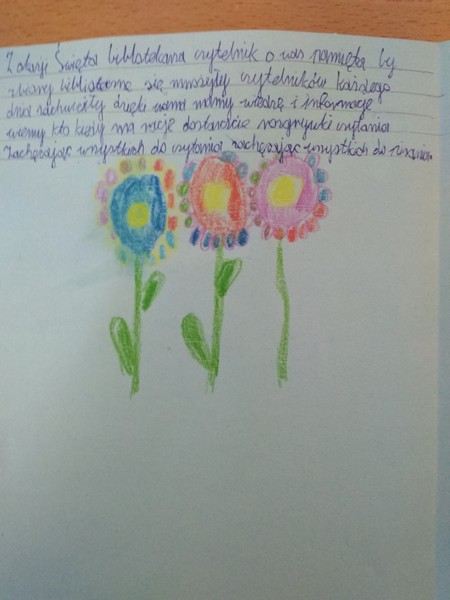 Z okazji Święta bibliotekarza czytelnik o was pamięta by
zbiory biblioteczne się mnożyły czytelników każdego
dnia zachwyciły dzięki wam mamy wiedzę i informację
wiemy kto kiedy ma rację dostarczcie rozgrywki czytania
Zachęcając wszystkich do czytania zachęcając wszystkich do